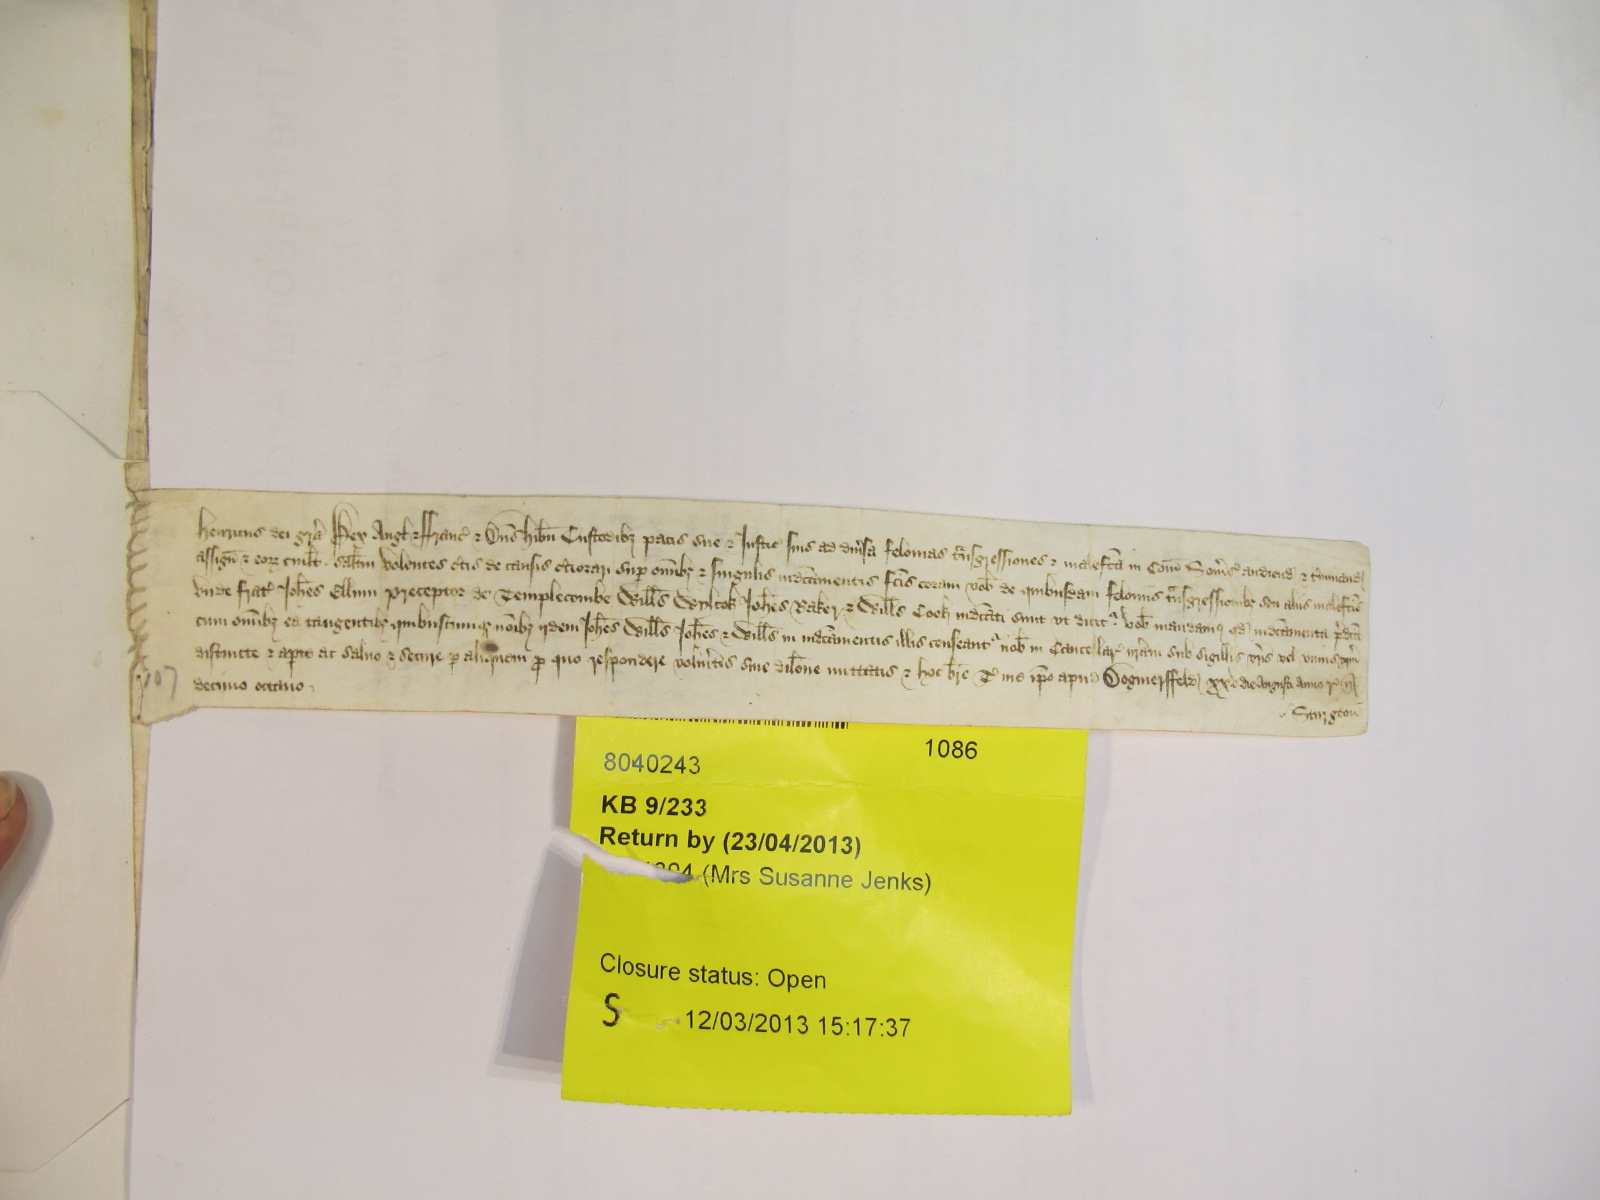 Henricus dei gra Rex Angl & Franc & Dns Hibn Custodibz pacis sue & Justic suis ad diu'sa felonias t'nsgressiones & malefca in Com Som's audiend & t'minand
assign & eorz cuilt saltm Volentes c'tis de causis c'tiorari sup omibz & singulis indcamentis fcis coram vob de quibusdam feloniis t'nsgressionibz seu aliis malefcis
vnde frat' Johes Ellum preceptor de Templecombe Wills Wylcok Johes Baker & Wills Cook indcati sunt vt dicit' Vob mandam' qd indcamenta p'dca
cum omibz ea tangentibz quibuscumqz noibz ijdem Johes Wills Johes & Wills in indcamentis illis censeant' nob in Cancellar nram sub sigillis vris vel vnius vrm
distincte & apte ac saluo & secure p aliquem p quo respondere volu'itis sine dilone mittatis & hoc bre T' me ipo apud Dogmersfeld xx die Augusti anno r' n
decimo octauo
Sturgeon
307
8040243
1086
KB 9/233
Return by (23/04/2013)
(Mrs Susanne Jenks)
Closure status: Open
S 12/03/2013 15:17:37